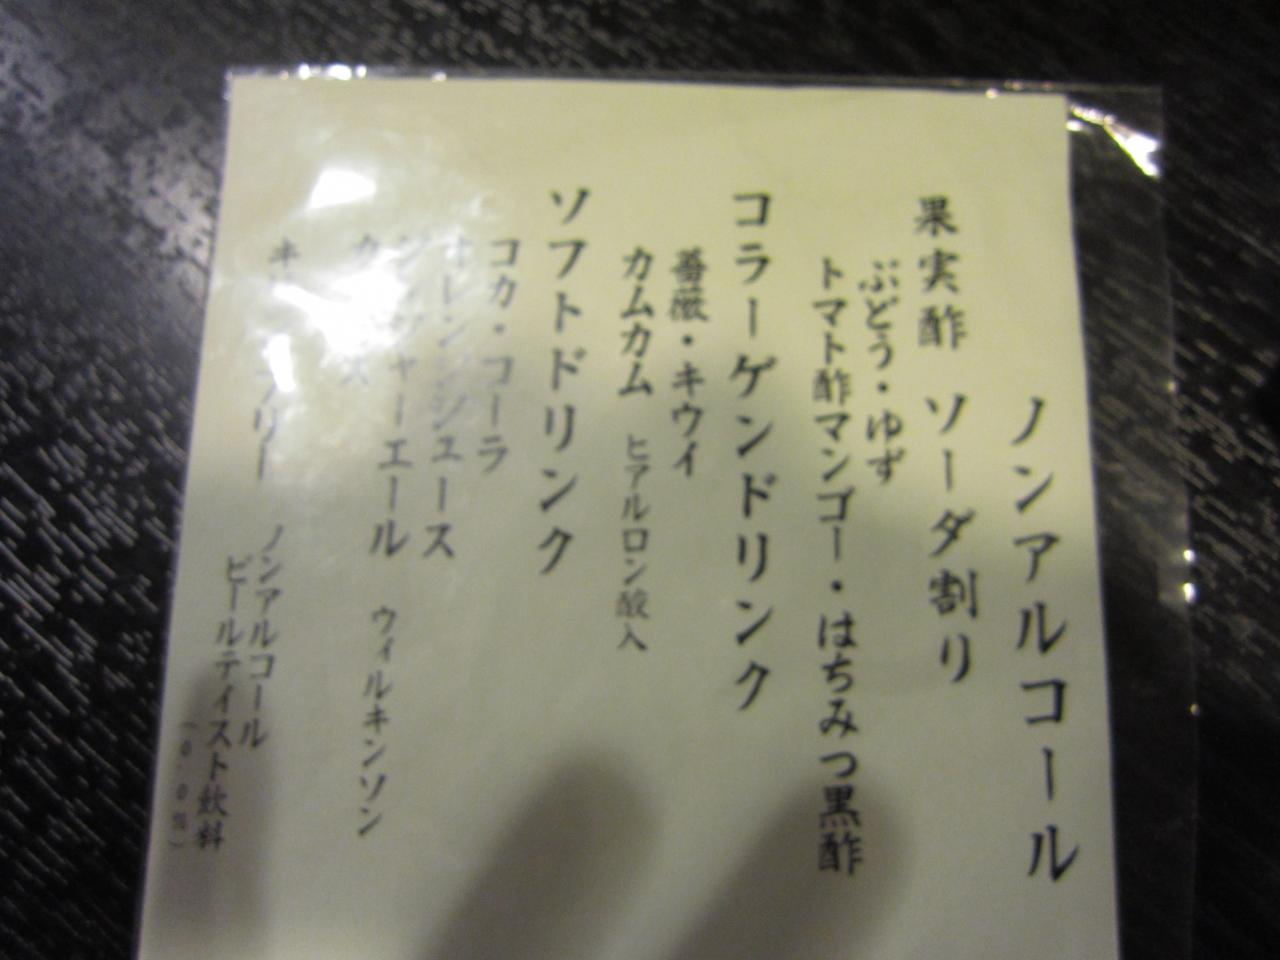 ノンアルコール
果実酢 ソーダ割り
ぶどう・ゆず
トマト酢マンゴー・はちみつ黒酢
コラーゲンドリンク
薔薇・キウイ
カムカム ヒアルロン酸入
ソフトドリンク
コカ・コーラ
オレンジジュース
ジンジャーエール ウィルキンソン
フリー ノンアルコール
ビールテイスト飲料
(0.0%)